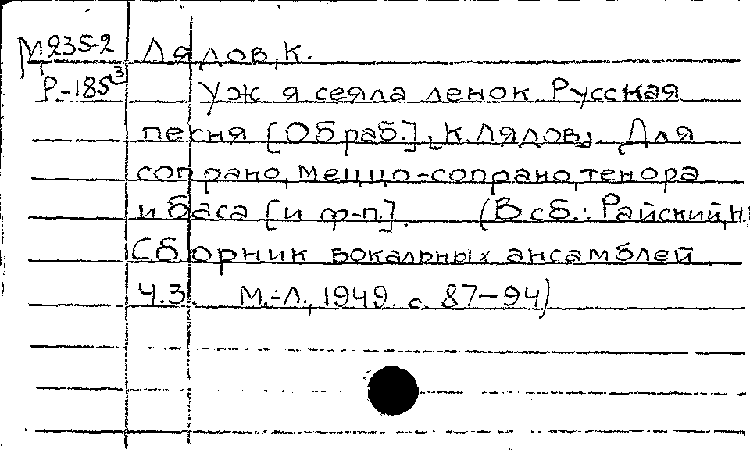 М235-2 Лядов, К.
Р-185³ Уж я сеяла ленок. Русская
песня [Обраб.] К. Лядова. Для
сопрано, меццо-сопрано, тенора
и баса [и ф-п.]. (В сб.: Райский, Н.
Сборник вокальных ансамблей
Ч.3. М.-Л., 1949. с. 87-94)